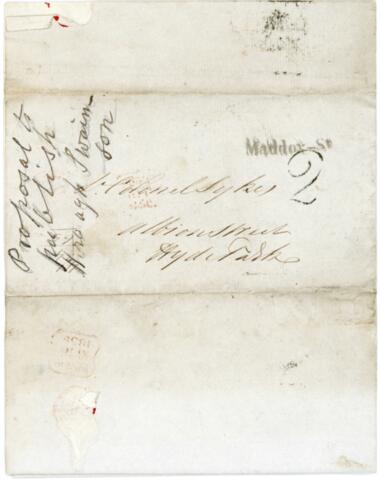 Proposal to
publish
through Swain
son
Maddox-St
2
Lt Colonel Sykes
Albion Street
Hyde Park